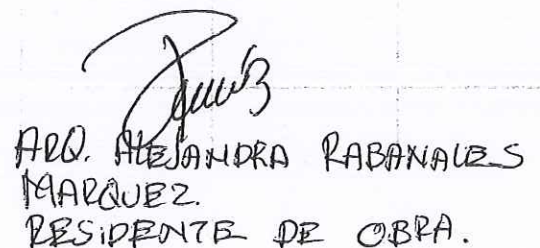 ARQ. ALEJANDRA RABANALES
MARQUEZ.
RESIDENTE DE OBRA.